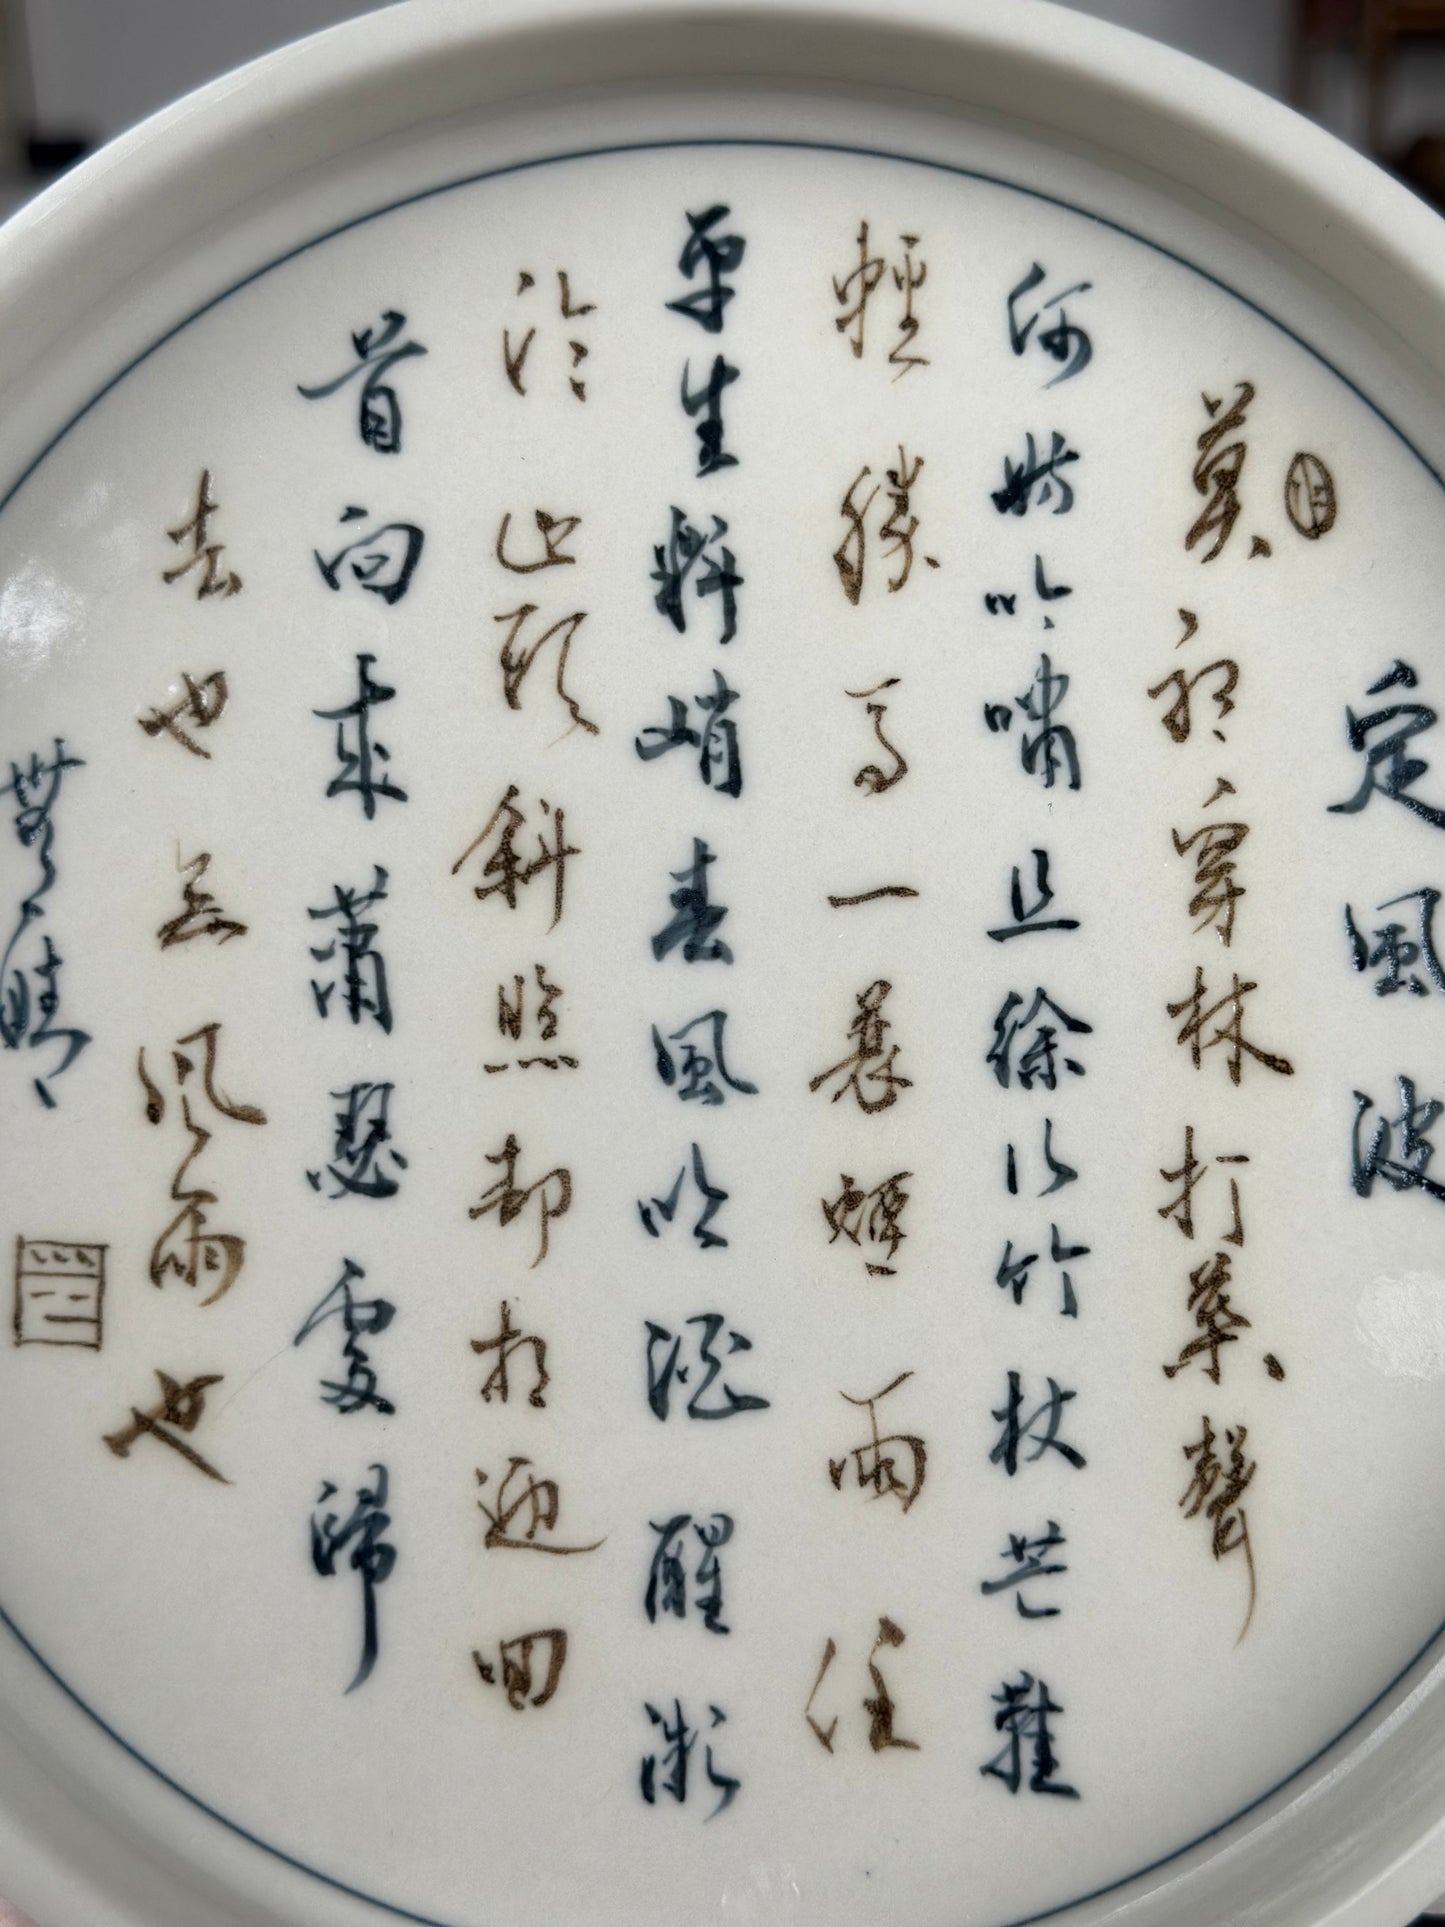 定風波
莫聽穿林打葉聲
何妨吟嘯且徐行竹杖芒鞋
輕勝馬一蓑煙雨任
平生料峭春風吹酒醒微
冷山頭斜照却相迎回
首向來蕭瑟處歸
去也無風雨也
無晴